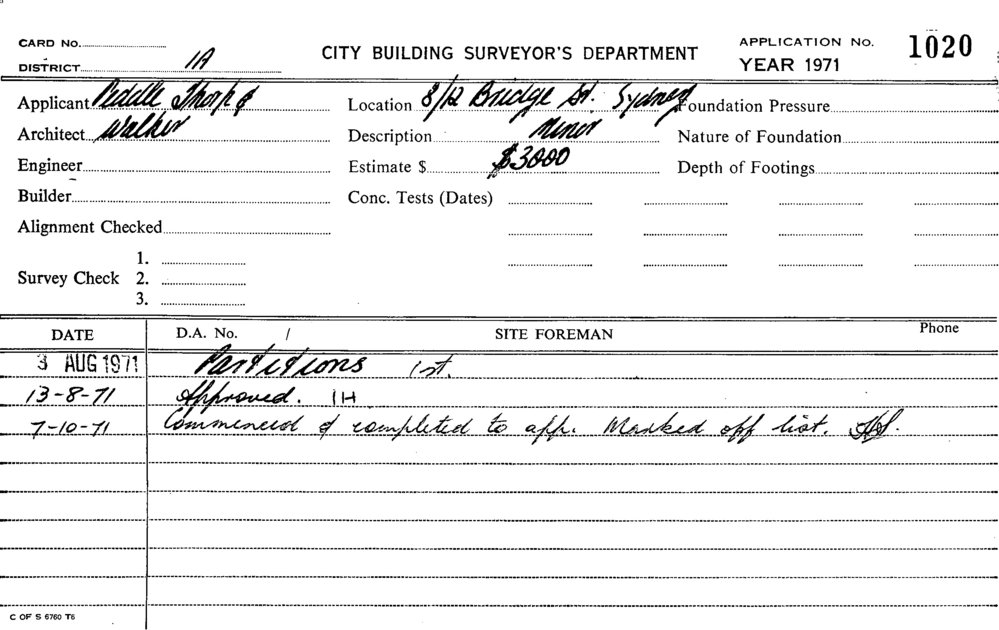 CARD No. CITY BUILDING SURVEYOR'S DEPARTMENT APPLICATION No. 1020
DISTRICT 1A YEAR 1971
Applicant Peddle Thorp & Location 8/12 Bridge St. Sydney Foundation Pressure
Architect Walker Description Minor Nature of Foundation
Engineer Estimate $ $3000 Depth of Footings
Builder Conc. Tests (Dates)
Alignment Checked
1.
Survey Check 2.
3.
DATE D.A. No. / SITE FOREMAN Phone
3 AUG 1971 Partitions 1st.
13-8-71 Approved. IH
7-10-71 Commenced & completed to app. Marked off list.
C OF S 6760 T6